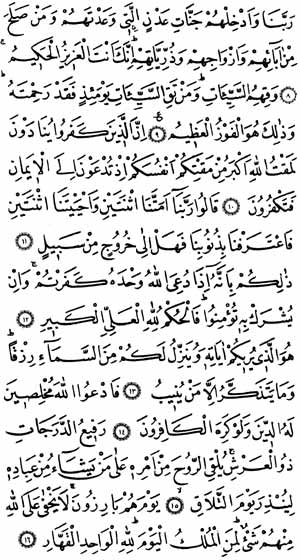 رَبَّنَا وَاَدْخِلْهُمْ جَنَّاتِ عَدْنٍ الَّتٖي وَعَدْتَهُمْ وَمَنْ صَلَحَ
مِنْ اٰبَٓائِهِمْ وَاَزْوَاجِهِمْ وَذُرِّيَّاتِهِمْ اِنَّكَ اَنْتَ الْعَزٖيزُ الْحَكٖيمُۙ
﴿٨﴾ وَقِهِمُ السَّيِّـَٔاتِ وَمَنْ تَقِ السَّيِّـَٔاتِ يَوْمَئِذٍ فَقَدْ رَحِمْتَهُ
وَذٰلِكَ هُوَ الْفَوْزُ الْعَظٖيمُ ﴿٩﴾ اِنَّ الَّذٖينَ كَفَرُوا يُنَادَوْنَ
لَمَقْتُ اللّٰهِ اَكْبَرُ مِنْ مَقْتِكُمْ اَنْفُسَكُمْ اِذْ تُدْعَوْنَ اِلَى الْاٖيمَانِ
فَتَكْفُرُونَ ﴿١٠﴾ قَالُوا رَبَّنَٓا اَمَتَّنَا اثْنَتَيْنِ وَاَحْيَيْتَنَا اثْنَتَيْنِ
فَاعْتَرَفْنَا بِذُنُوبِنَا فَهَلْ اِلٰى خُرُوجٍ مِنْ سَبٖيلٍ ﴿١١﴾
ذٰلِكُمْ بِاَنَّهُٓ اِذَا دُعِيَ اللّٰهُ وَحْدَهُ كَفَرْتُمْ وَاِنْ
يُشْرَكْ بِهٖ تُؤْمِنُوا فَالْحُكْمُ لِلّٰهِ الْعَلِيِّ الْكَبٖيرِ ﴿١٢﴾
هُوَ الَّذٖي يُرٖيكُمْ اٰيَاتِهٖ وَيُنَزِّلُ لَكُمْ مِنَ السَّمَٓاءِ رِزْقًا
وَمَا يَتَذَكَّرُ اِلَّا مَنْ يُنٖيبُ ﴿١٣﴾ فَادْعُوا اللّٰهَ مُخْلِصٖينَ
لَهُ الدّٖينَ وَلَوْ كَرِهَ الْكَافِرُونَ ﴿١٤﴾ رَفٖيعُ الدَّرَجَاتِ
ذُو الْعَرْشِ يُلْقِي الرُّوحَ مِنْ اَمْرِهٖ عَلٰى مَنْ يَشَٓاءُ مِنْ عِبَادِهٖ
لِيُنْذِرَ يَوْمَ التَّلَاقِ ﴿١٥﴾ يَوْمَ هُمْ بَارِزُونَ لَا يَخْفٰى عَلَى اللّٰهِ
مِنْهُمْ شَيْءٌ لِمَنِ الْمُلْكُ الْيَوْمَ لِلّٰهِ الْوَاحِدِ الْقَهَّارِ ﴿١٦﴾